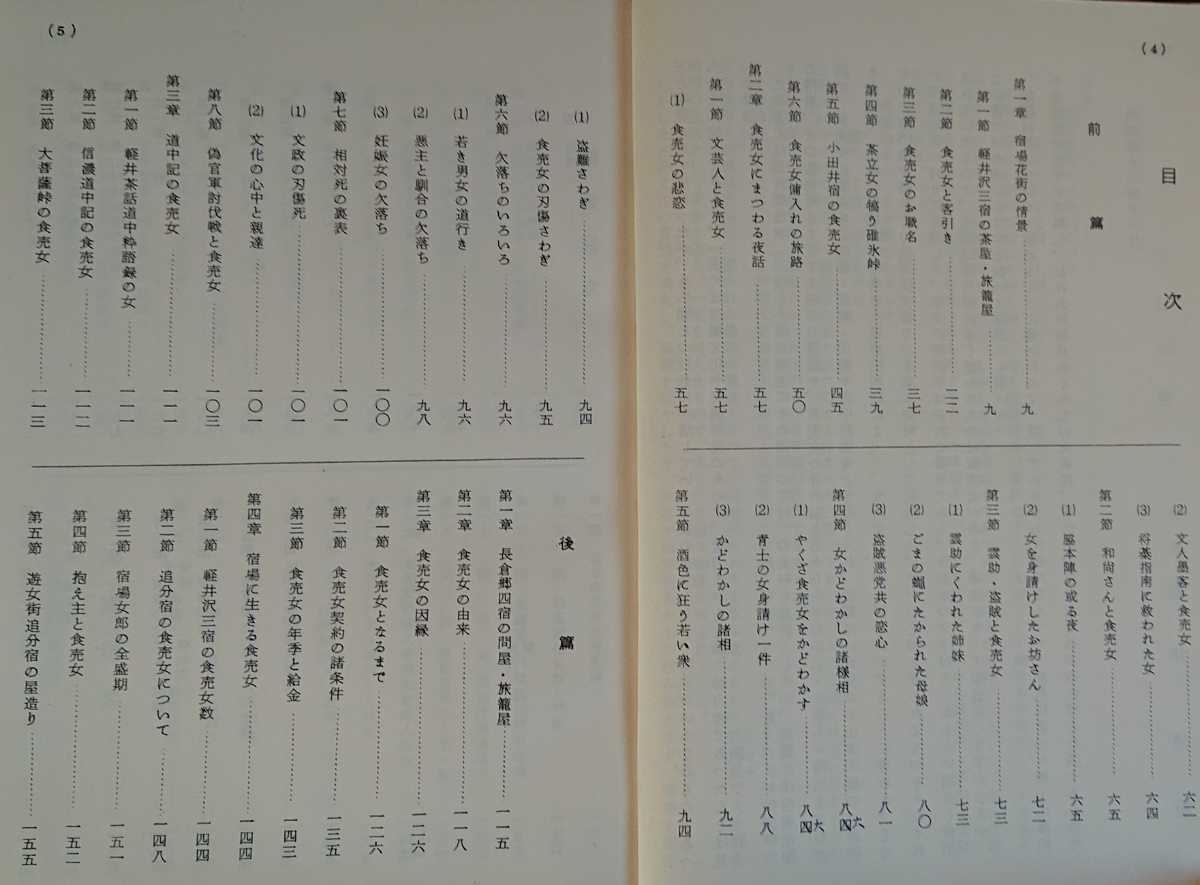 (4)
目次
前篇
第一章 宿場花街の情景……九
第一節 軽井沢三宿の茶屋・旅籠屋……九
第二節 食売女と客引き……二二
第三節 食売女のお職名……三七
第四節 茶立女の犒う碓氷峠……三九
第五節 小田井宿の食売女……四五
第六節 食売女傭入れの旅路……五〇
第二章 食売女にまつわる夜話……五七
第一節 文芸人と食売女……五七
(1) 食売女の悲恋……五七
(2) 文人墨客と食売女……六二
(3) 将棊指南に救われた女……六四
第二節 和尚さんと食売女……六五
(1) 脇本陣の或る夜……六五
(2) 女を身請けしたお坊さん……七二
第三節 雲助・盗賊と食売女……七三
(1) 雲助にくわれた姉妹……七三
(2) ごまの蝿にたかられた母娘……八〇
(3) 盗賊悪党共の恋心……八一
第四節 女かどわかしの諸様相……八四六
(1) やくざ食売女をかどわかす……八四六
(2) 青士の女身請け一件……八八
(3) かどわかしの諸相……九二
第五節 酒色に狂う若い衆……九四
(5)
(1) 盗難さわぎ……九四
(2) 食売女の刃傷さわぎ……九五
第六節 欠落ちのいろいろ……九六
(1) 若き男女の道行き……九六
(2) 悪主と馴合の欠落ち……九八
(3) 妊娠女の欠落ち……一〇〇
第七節 相対死の裏表……一〇一
(1) 文政の刃傷死……一〇一
(2) 文化の心中と親達……一〇一
第八節 偽官軍討伐戦と食売女……一〇三
第三章 道中記の食売女……一一一
第一節 軽井茶話道中粋語録の女……一一一
第二節 信濃道中記の食売女……一一二
第三節 大菩薩峠の食売女……一一三
後篇
第一章 長倉郷四宿の問屋・旅籠屋……一一五
第二章 食売女の由来……一一八
第三章 食売女の因縁……一二六
第一節 食売女となるまで……一二六
第二節 食売女契約の諸条件……一三五
第三節 食売女の年季と給金……一四三
第四章 宿場に生きる食売女……一四四
第一節 軽井沢三宿の食売女数……一四四
第二節 追分宿の食売女について……一四八
第三節 宿場女郎の全盛期……一五一
第四節 抱え主と食売女……一五二
第五節 遊女街追分宿の屋造り……一五五